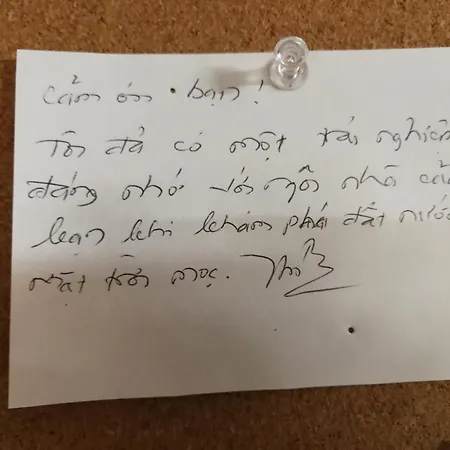 Cảm ơn bạn!
Tôi đã có một trải nghiệm
đáng nhớ với ngôi nhà củ
bạn khi khám phá đất nước
mặt trời mọc.